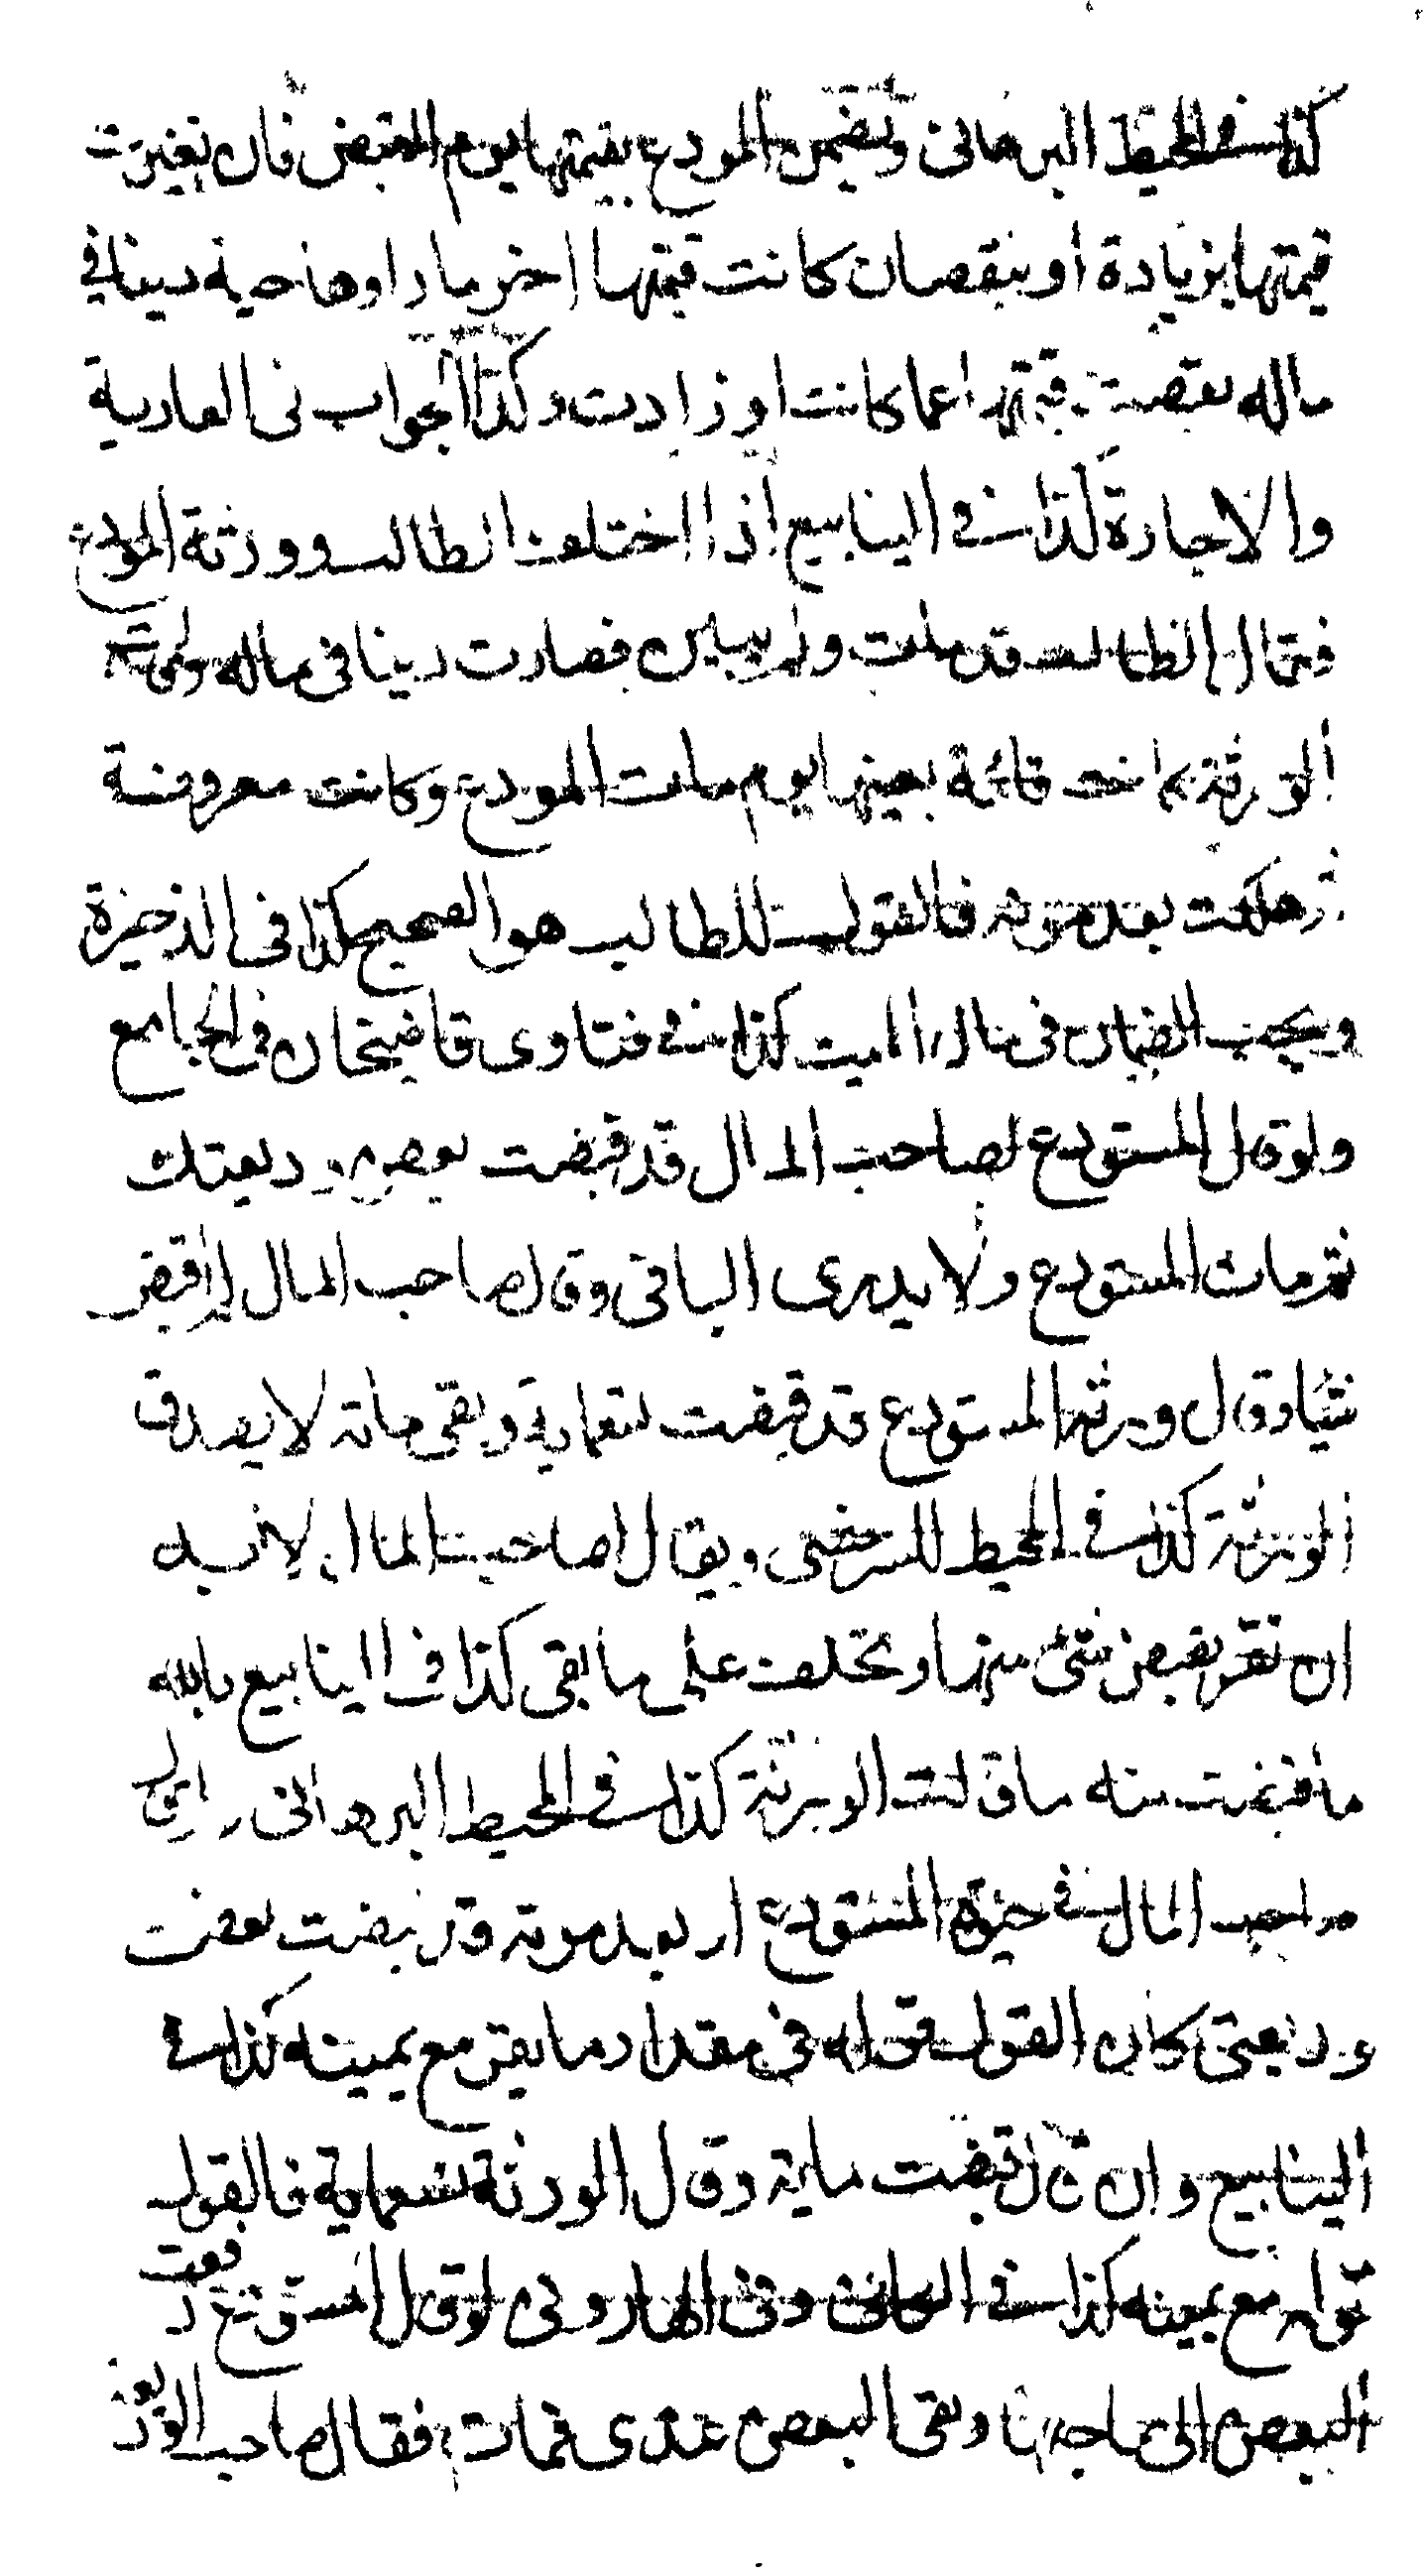 كذا في المحيط البرهاني ويضمن المودع بقيمتها يوم القبض فان تغيرت
قيمتها بزيادة أو بنقصان كانت قيمتها اخر ما راوها حية دينا في
ماله نقصت قيمتها عما كانت او زادت وكذا الجواب في العارية
والاجارة كذا في الينابيع اذا اختلف الطالب وورثة المودع
فقال الطالب قد مات ولم يبين فصارت دينا في ماله وقالت
الورثة كانت قائمة بعينها يوم مات المودع وكانت معروفة
ثم هلكت بعد موته فالقول للطالب هو الصحيح كذا في الذخيرة
ويجب الضمان في مال الميت كذا في فتاوى قاضيخان في الجامع
ولو قال المستودع لصاحب المال قد قبضت بعض وديعتك
ثم مات المستودع ولا يدرى الباقي وقال صاحب المال لم اقبض
شيئا وقال ورثة المستودع قد قبضت تسعماية وبقي مائة لا يصدق
الورثة كذا في المحيط للسرخسي ويقال لصاحب المال لا بد
ان تقر بقبض شئ منها وتحلف على ما بقي كذا في الينابيع بالله
ما قبضت منه ما قالت الورثة كذا في المحيط البرهاني
صاحب المال في حيوة المستودع او بعد موته قد قبضت بعض
وديعتي كان القول قوله في مقدار ما يقر مع يمينه كذا في
الينابيع وان قال قبضت ماية وقال الورثة تسعماية فالقول
قوله مع يمينه كذا في وفي الهاروني لو قال المستودع دفعت
البعض الى صاحبها وبقي البعض عندي فمات فقال صاحب الوديعة